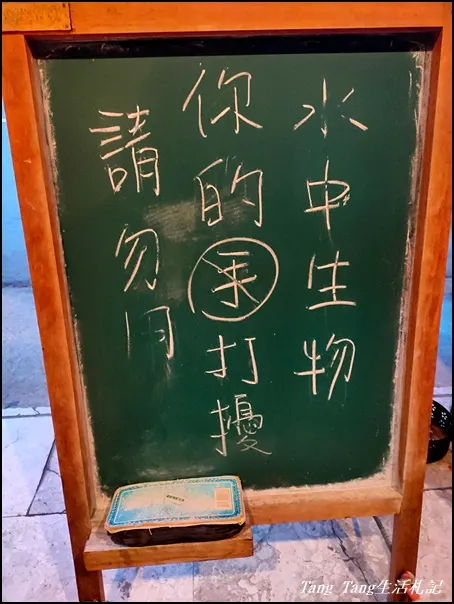 請勿用
你的手打擾
水中生物
Tang Tang生活札記